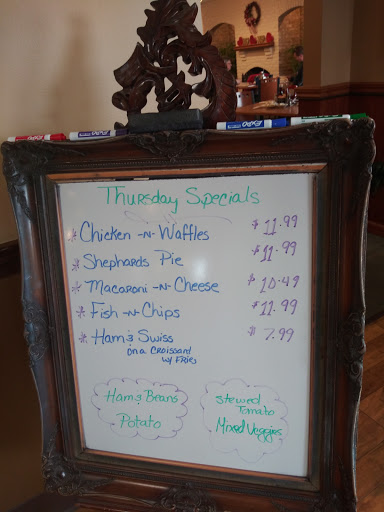 Thursday Specials
* Chicken -n- Waffles $11.99
* Shephards Pie $11.99
* Macaroni -n- Cheese $10.49
* Fish -n- Chips $11.99
* Ham & Swiss $7.99
on a Croissard
w/ Fries
Ham & Beans
Potato
Stewed
Tomato
Mixed Veggies